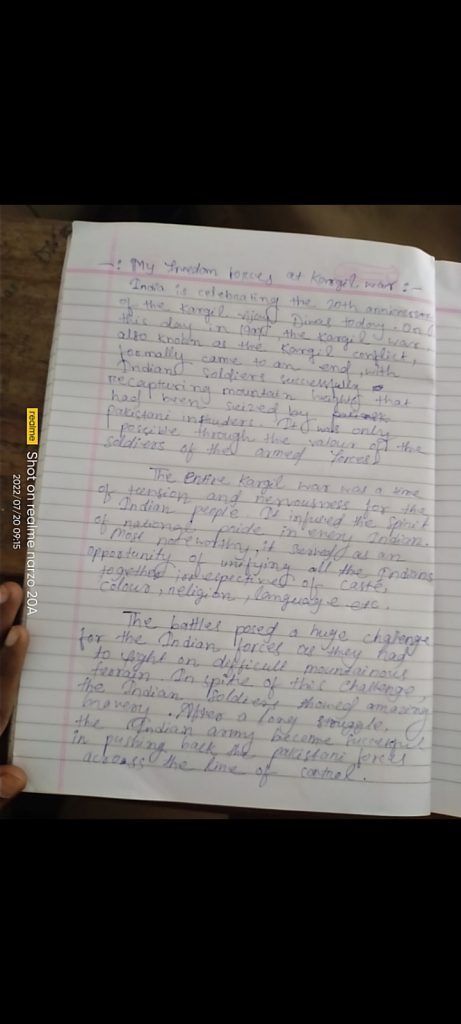 -: My freedom forces at Kargil war :-
India is celebrating the 20th anniversary
of the Kargil vijay Dinas today. On
this day in 1999, the Kargil war
also known as the Kargil conflict,
formally came to an end, with
Indian soldiers successfully
recapturing mountain heights that
had been seized by
pakistani intruders. It was only
possible through the valour of the
soldiers of the armed forces
The entire Kargil war was a time
of tension and nervousness for the
Indian people. It infused the spirit
of national pride in every Indian.
Most noteworthy, it served as an
opportunity of unifying all the Indians
together, irrespective of caste,
colour, religion, language etc.
The battles posed a huge challenge
for the Indian forces as they had
to fight on difficult mountainous
terrain. In spite of this challenge,
the Indian soldiers showed amazing
bravery. After a long struggle,
the Indian army became successful
in pushing back the pakistani forces
across the line of control.
realme Shot on realme narzo 20A
2022/07/20 09:15